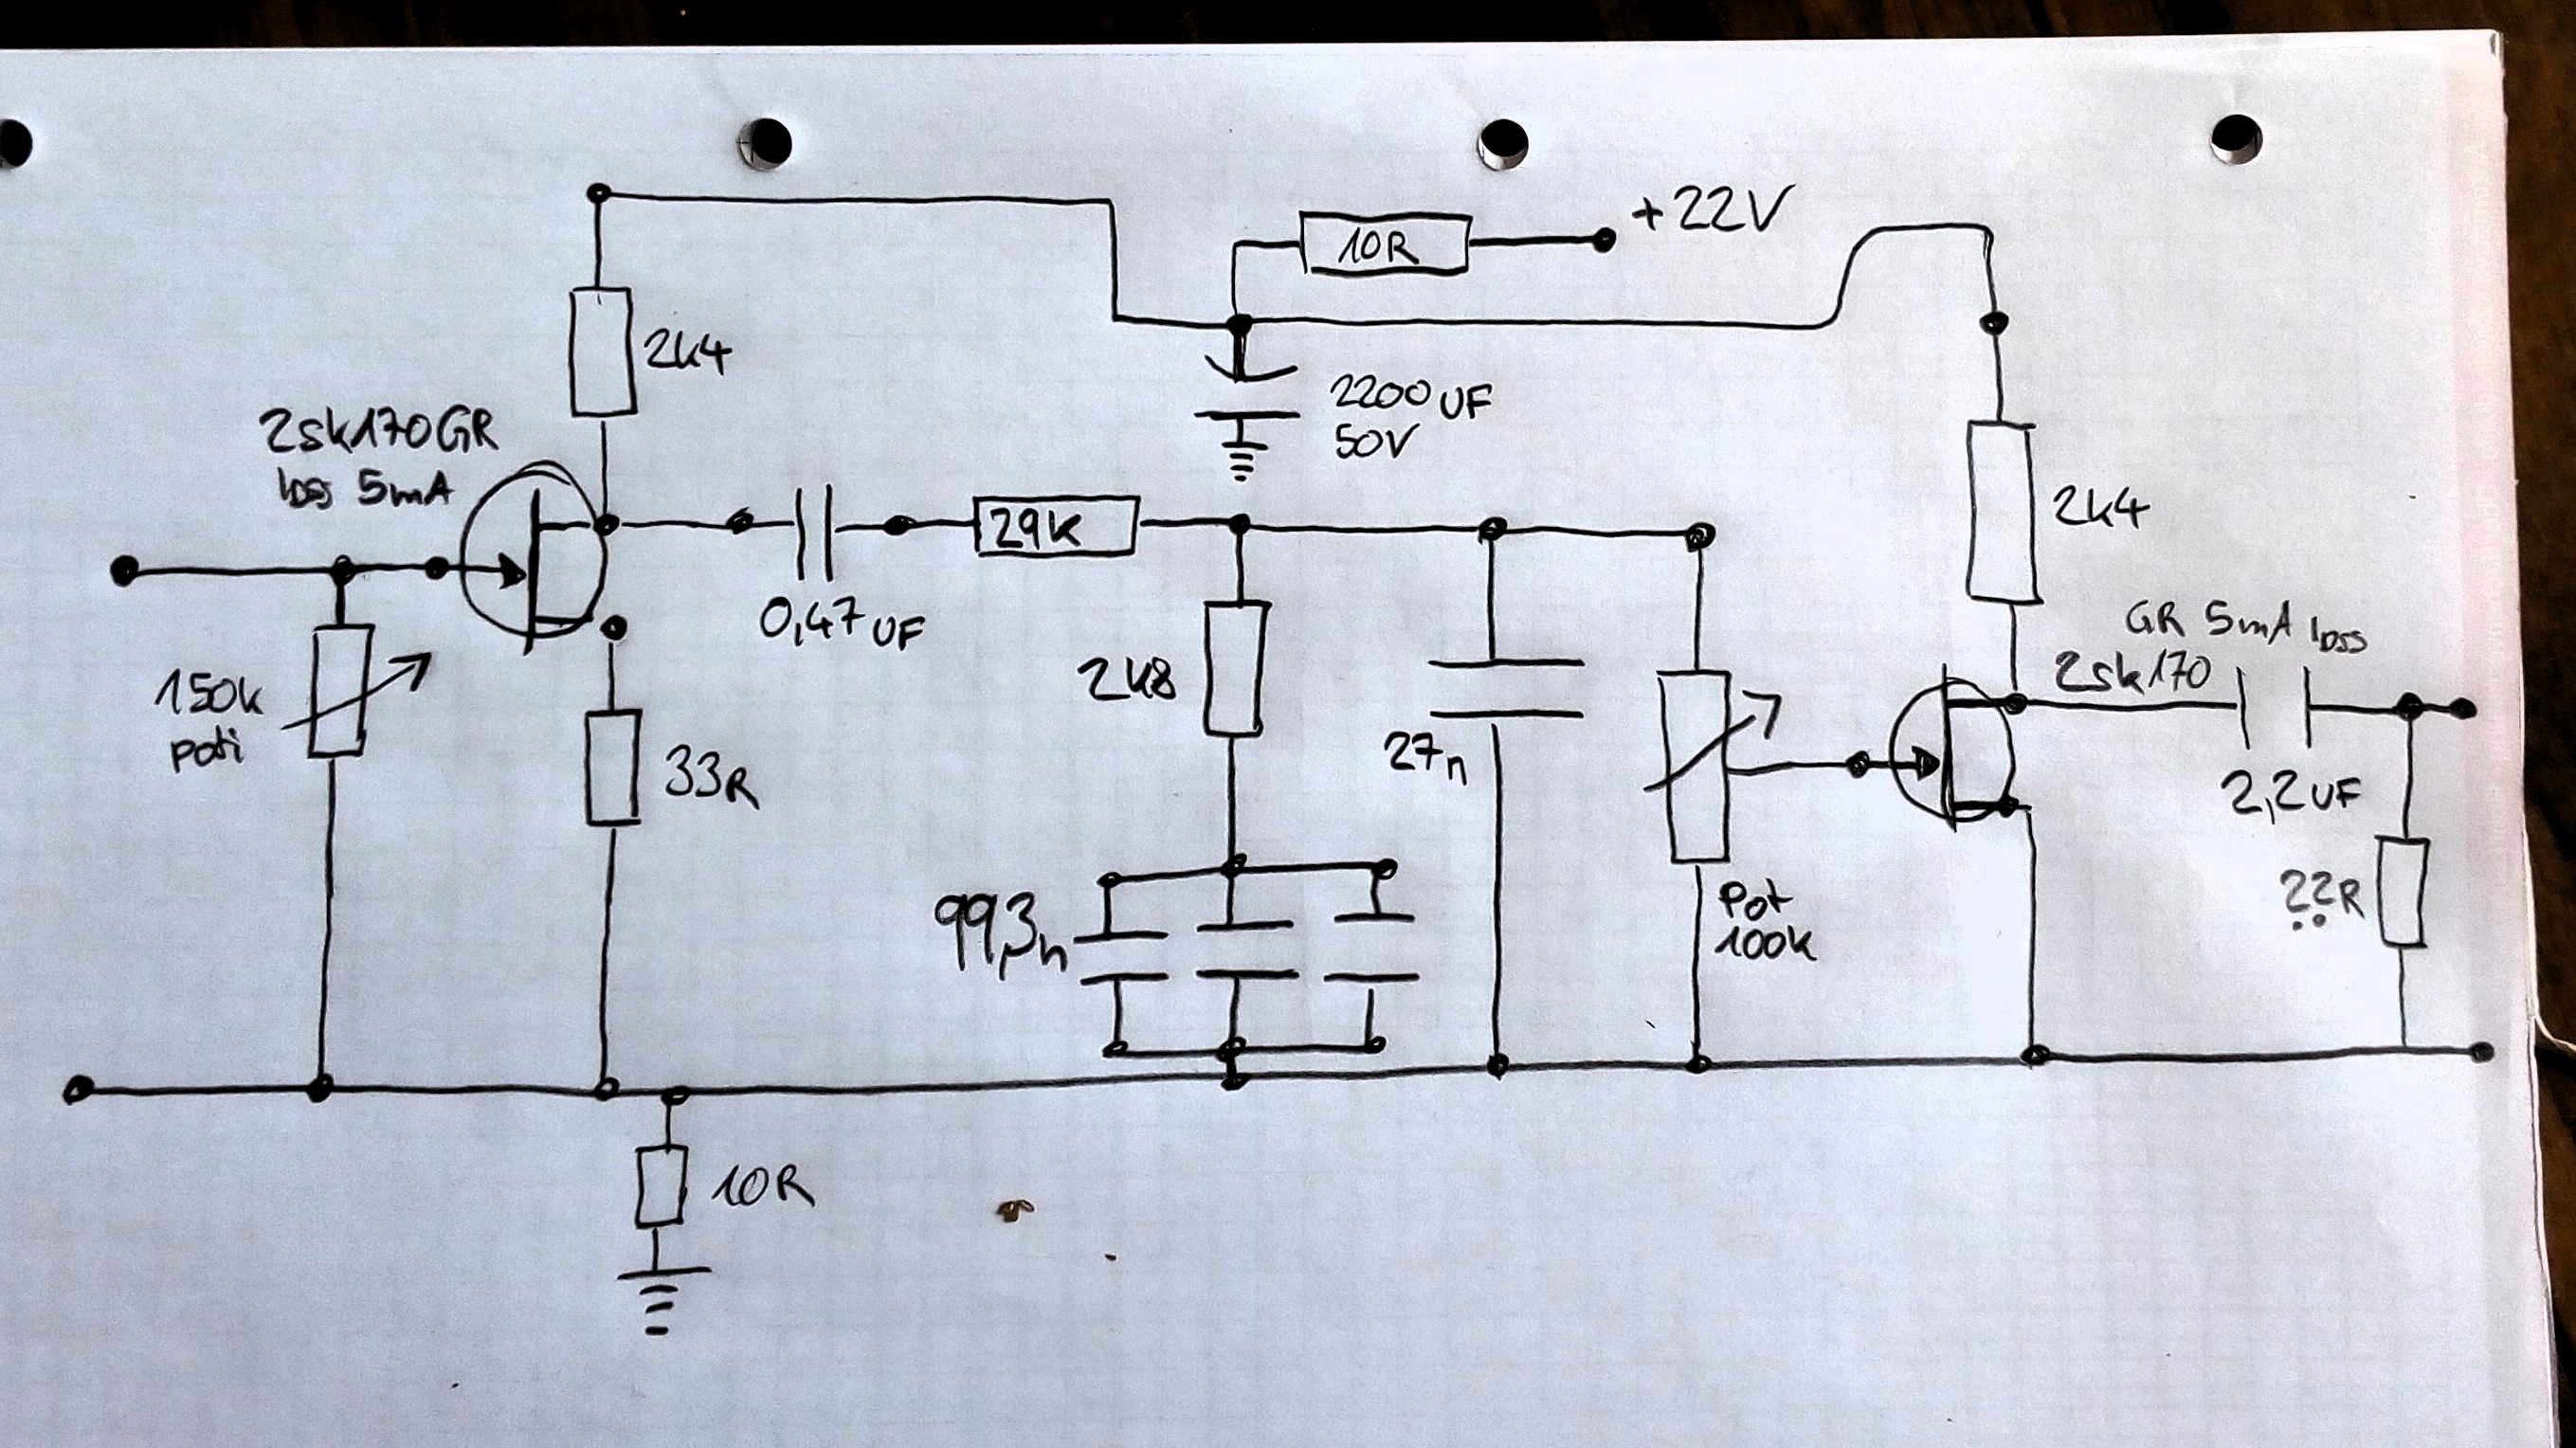 +22V
10R
2k4
2200uF
50V
2sk170GR
IDSS 5mA
29k
2k4
0,47uF
GR 5mA IDSS
2sk170
150k
poti
2k8
33R
27n
2,2uF
99,3n
Pot
100k
??R
10R